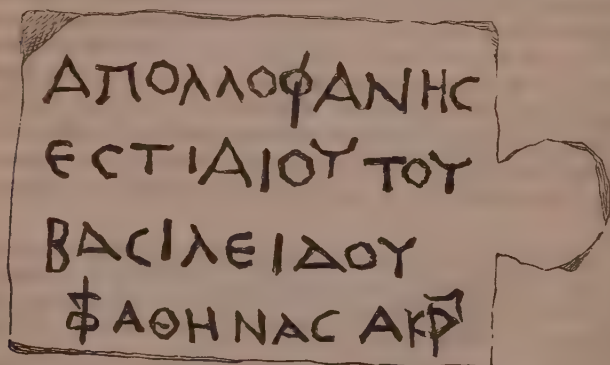 ΑΠΟΛΛΟΦΑΝΗϹ
ΕϹΤΙΑΙΟΥ ΤΟΥ
ΒΑϹΙΛΕΙΔΟΥ
ΑΘΗΝΑϹ ΑΚΡ